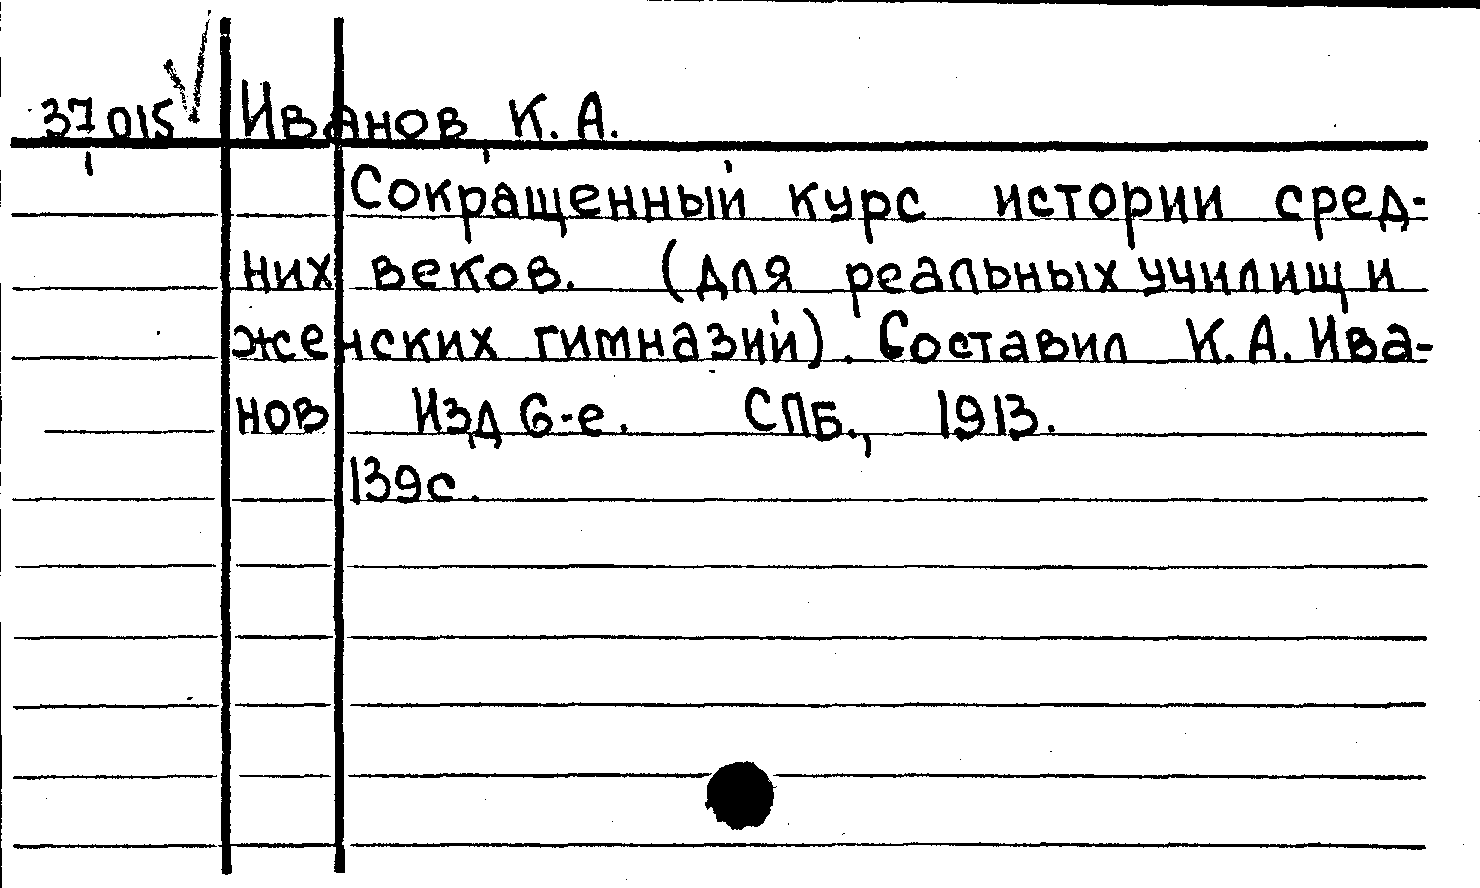 37015 Иванов К. А.
Сокращенный курс истории сред-
них веков. (для реальных училищ и
женских гимназий). Составил К. А. Ива-
нов Изд 6-е. СПБ., 1913.
139с.